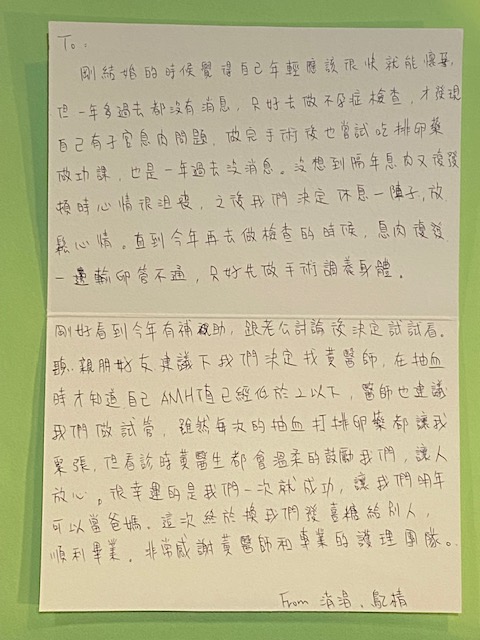 To:
剛結婚的時候覺得自己年輕應該很快就能懷孕,
但一年多過去都沒有消息,只好去做不孕症檢查,才發現
自己有子宮息肉問題,做完手術後也嘗試吃排卵藥
做功課,也是一年過去沒消息。沒想到隔年息肉又復發
頓時心情很沮喪,之後我們決定休息一陣子,放
鬆心情。直到今年再去做檢查的時候,息肉復發
一邊輸卵管不通,只好先做手術調養身體。
剛好看到今年有補助,跟老公討論後決定試試看。
聽親朋好友建議下我們決定找黃醫師,在抽血
時才知道自己AMH值已經低於2以下,醫師也建議
我們做試管,雖然每次的抽血打排卵藥都讓我
緊張,但看診時黃醫生都會溫柔的鼓勵我們,讓人
放心。很幸運的是我們一次就成功,讓我們明年
可以當爸媽。這次終於換我們發喜糖給別人,
順利畢業。非常感謝黃醫師和專業的護理團隊。
From